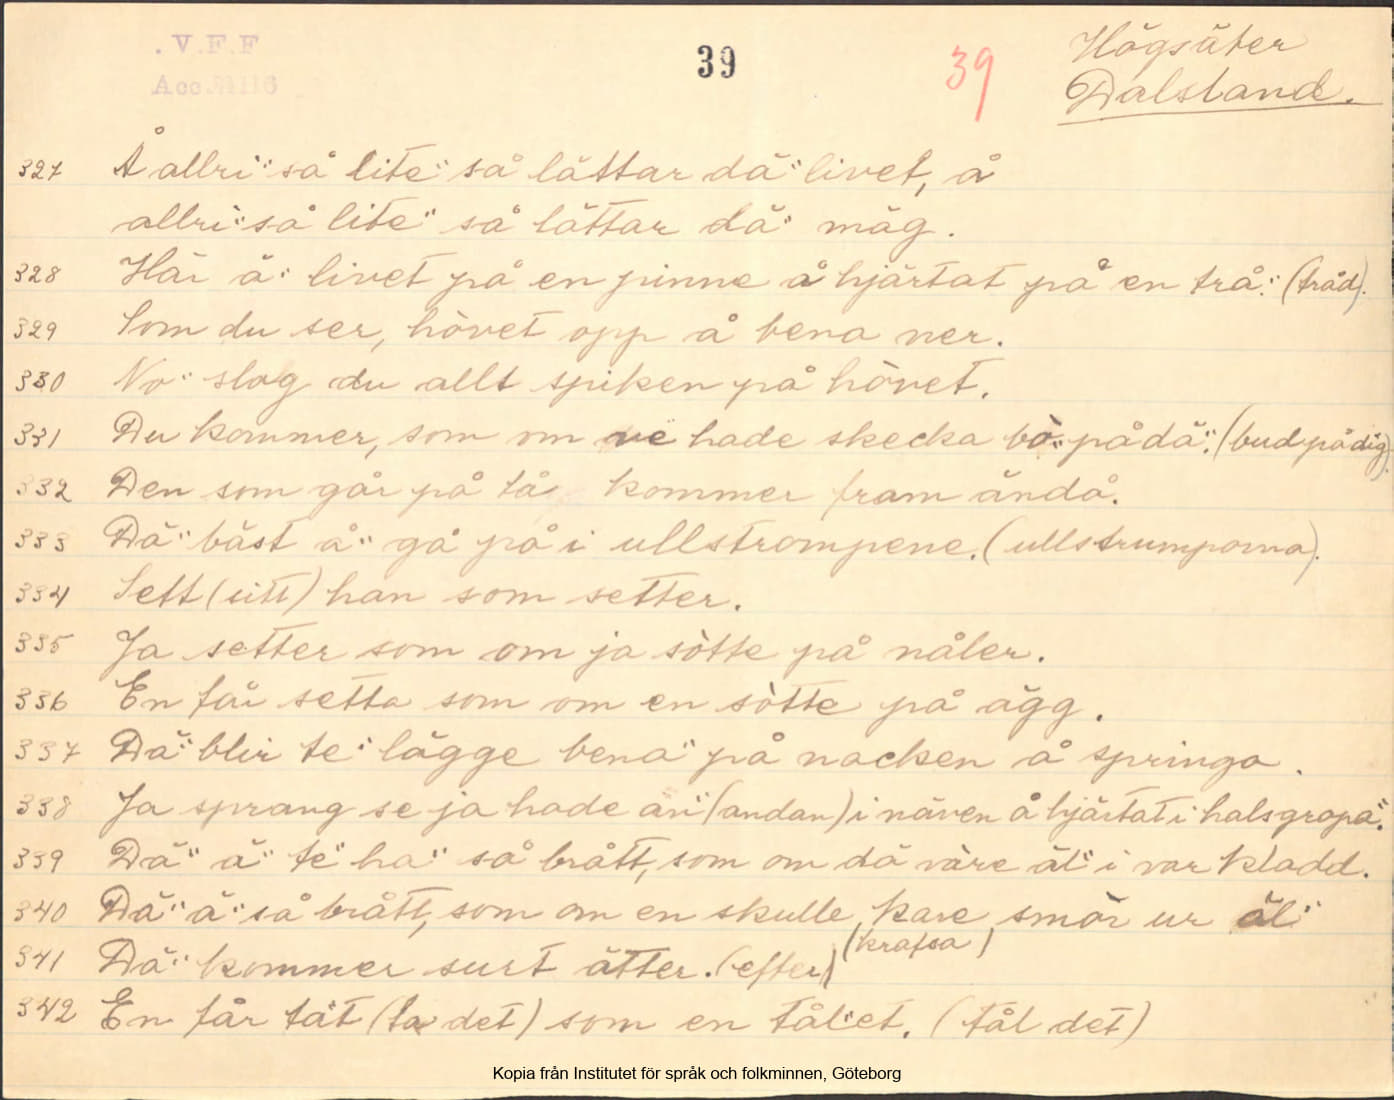 V.F.F
39
39
Högsäter
Acc. № 116
Dalsland.
327 Å allri¨ så lite¨ så lättar dä¨ livet, å
allri¨ så lite¨ så lättar dä¨ mäg.
328 Här ä¨ livet på en pinne å hjärtat på en trå¨. (tråd).
329 Som du ser, hövet opp å bena ner.
330 No¨ slog du allt spiken på hövet.
331 Du kommer, som om ve hade skecka bò¨ på dä¨. (bud på dig).
332 Den som går på tå kommer fram ändå.
333 Dä¨ bäst å¨ gå på i ullstrompene. (ullstrumporna).
334 Sett (sitt) han som setter.
335 Ja setter som om ja sòtte på nåler.
336 En får setta som om en sòtte på ägg.
337 Dä¨ blir te¨ lägge bena¨ på nacken å springa.
338 Ja sprang se ja hade an¨ (andan) i näven å hjärtat i halsgropa¨.
339 Dä¨ ä¨ te¨ ha¨ så brått, som om dä vòre äl¨ i var kladd.
340 Dä¨ ä¨ så brått, som om en skulle kare smör ur äl¨
(krafsa)
341 Dä¨ kommer surt ätter. (efter)
342 En får tät (ta det) som en tål¨et. (tål det)
Kopia från Institutet för språk och folkminnen, Göteborg